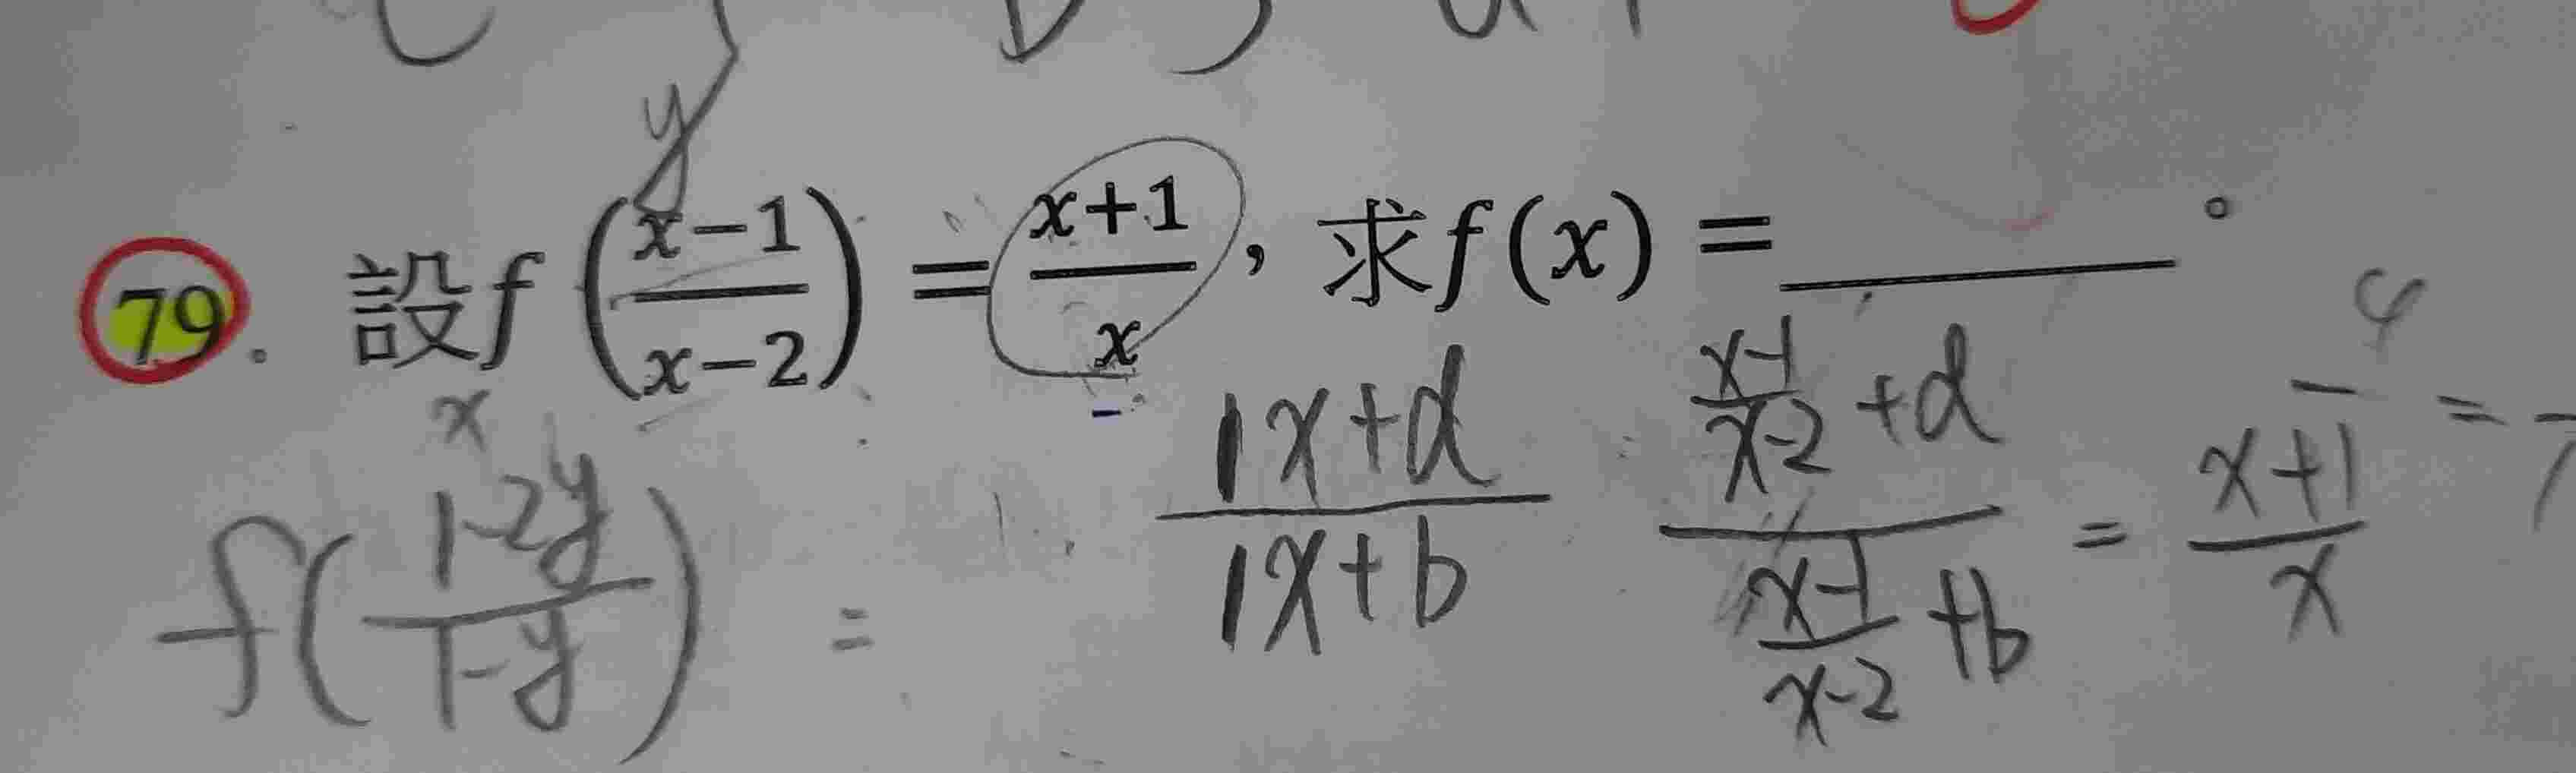 y
79. 設f((x-1)/(x-2)) = (x+1)/x, 求f(x) = ________。
x
f((1-2y)/(1-y)) =
(1x+d)/(1x+b)
((x-1)/(x-2)+d)/((x-1)/(x-2)+b) = (x+1)/x